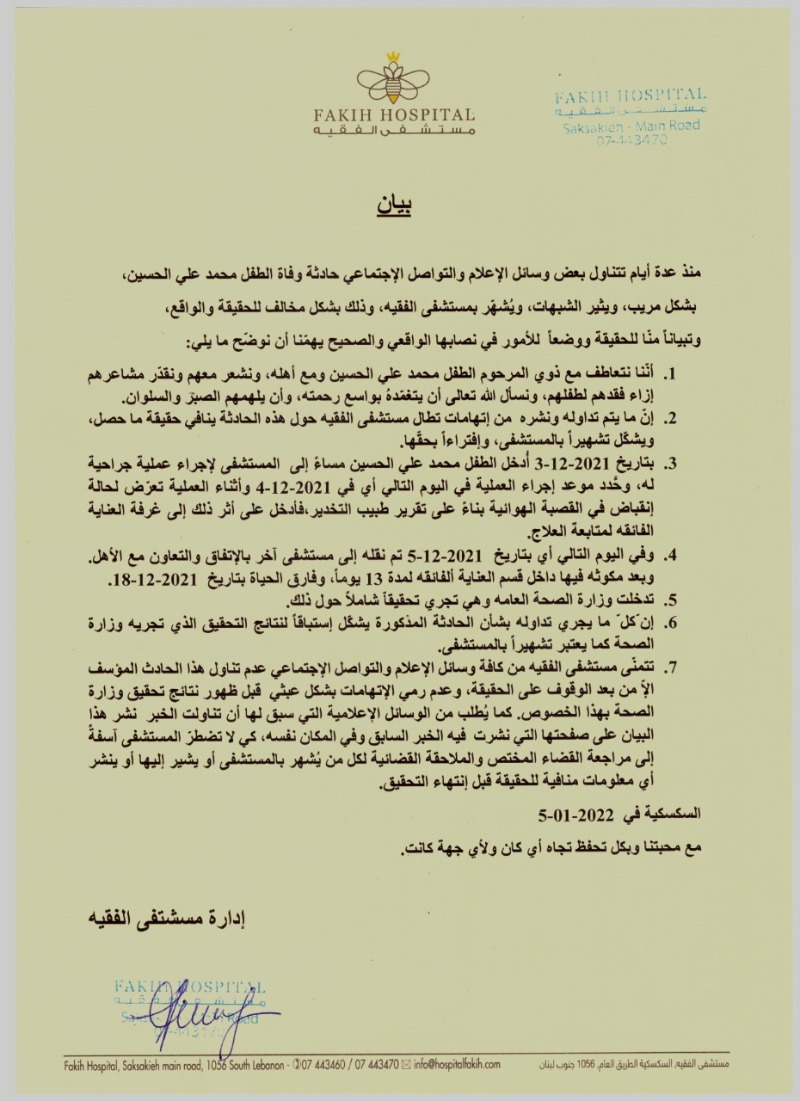 FAKIH HOSPITAL
مستشفى الفقيه
FAKIH HOSPITAL
مستشفى الفقيه
Saksakieh - Main Road
07-443470
بيان
منذ عدة أيام تتناول بعض وسائل الإعلام والتواصل الإجتماعي حادثة وفاة الطفل محمد علي الحسين،
بشكل مريب، ويثير الشبهات، ويُشهّر بمستشفى الفقيه، وذلك بشكل مخالف للحقيقة والواقع،
وتبياناً منّا للحقيقة ووضعاً للأمور في نصابها الواقعي والصحيح يهمّنا أن نوضّح ما يلي:
1. أنّنا نتعاطف مع ذوي المرحوم الطفل محمد علي الحسين ومع أهله، ونشعر معهم ونقدّر مشاعرهم
إزاء فقدهم لطفلهم، ونسأل الله تعالى أن يتغمّدهُ بواسع رحمته، وأن يلهمهم الصبر والسلوان.
2. إنّ ما يتم تداوله ونشره من إتهامات تطال مستشفى الفقيه حول هذه الحادثة ينافي حقيقة ما حصل،
ويشكّل تشهيراً بالمستشفى، وإفتراءاً بحقّها.
3. بتاريخ 2021-12-3 أُدخل الطفل محمد علي الحسين مساءً إلى المستشفى لإجراء عملية جراحية
له، وحُدد موعد إجراء العملية في اليوم التالي أي في 2021-12-4 وأثناء العملية تعرّض لحالة
إنقباض في القصبة الهوائية بناءً على تقرير طبيب التخدير،فأدخل على أثر ذلك إلى غرفة العناية
الفائقه لمتابعة العلاج.
4. وفي اليوم التالي أي بتاريخ 2021-12-5 تم نقله إلى مستشفى آخر بالإتفاق والتعاون مع الأهل.
وبعد مكوثه فيها داخل قسم العناية ألفائقه لمدة 13 يوماً، وفارق الحياة بتاريخ 2021-12-18.
5. تدخلت وزارة الصحة العامه وهي تجري تحقيقاً شاملاً حول ذلك.
6. إن ّكلّ ما يجري تداوله بشأن الحادثة المذكورة يشكّل إستباقاً لنتائج التحقيق الذي تجريه وزارة
الصحة كما يعتبر تشهيراً بالمستشفى.
7. تتمنّى مستشفى الفقيه من كافة وسائل الإعلام والتواصل الإجتماعي عدم تناول هذا الحادث المؤسف
الاّ من بعد الوقوف على الحقيقة، وعدم رمي الإتهامات بشكل عبثي قبل ظهور نتائج تحقيق وزارة
الصحة بهذا الخصوص. كما يُطلب من الوسائل الإعلامية التي سبق لها أن تناولت الخبر نشر هذا
البيان على صفحتها التي نشرت فيه الخبر السابق وفي المكان نفسه، كي لا تضطرّ المستشفى آسفةً
إلى مراجعة القضاء المختص والملاحقة القضائية لكل من يُشهر بالمستشفى أو يشير إليها أو ينشر
أي معلومات منافية للحقيقة قبل إنتهاء التحقيق.
السكسكية في 2022-01-5
مع محبتنا وبكل تحفظ تجاه أي كان ولأي جهة كانت.
إدارة مسشتفى الفقيه
FAKIH HOSPITAL
مستشفى الفقيه
Fakih Hospital, Saksakieh main road, 1056 South Lebanon - 07 443460 / 07 443470 info@hospitalfakih.com
مستشفى الفقيه, السكسكية الطريق العام, 1056 جنوب لبنان